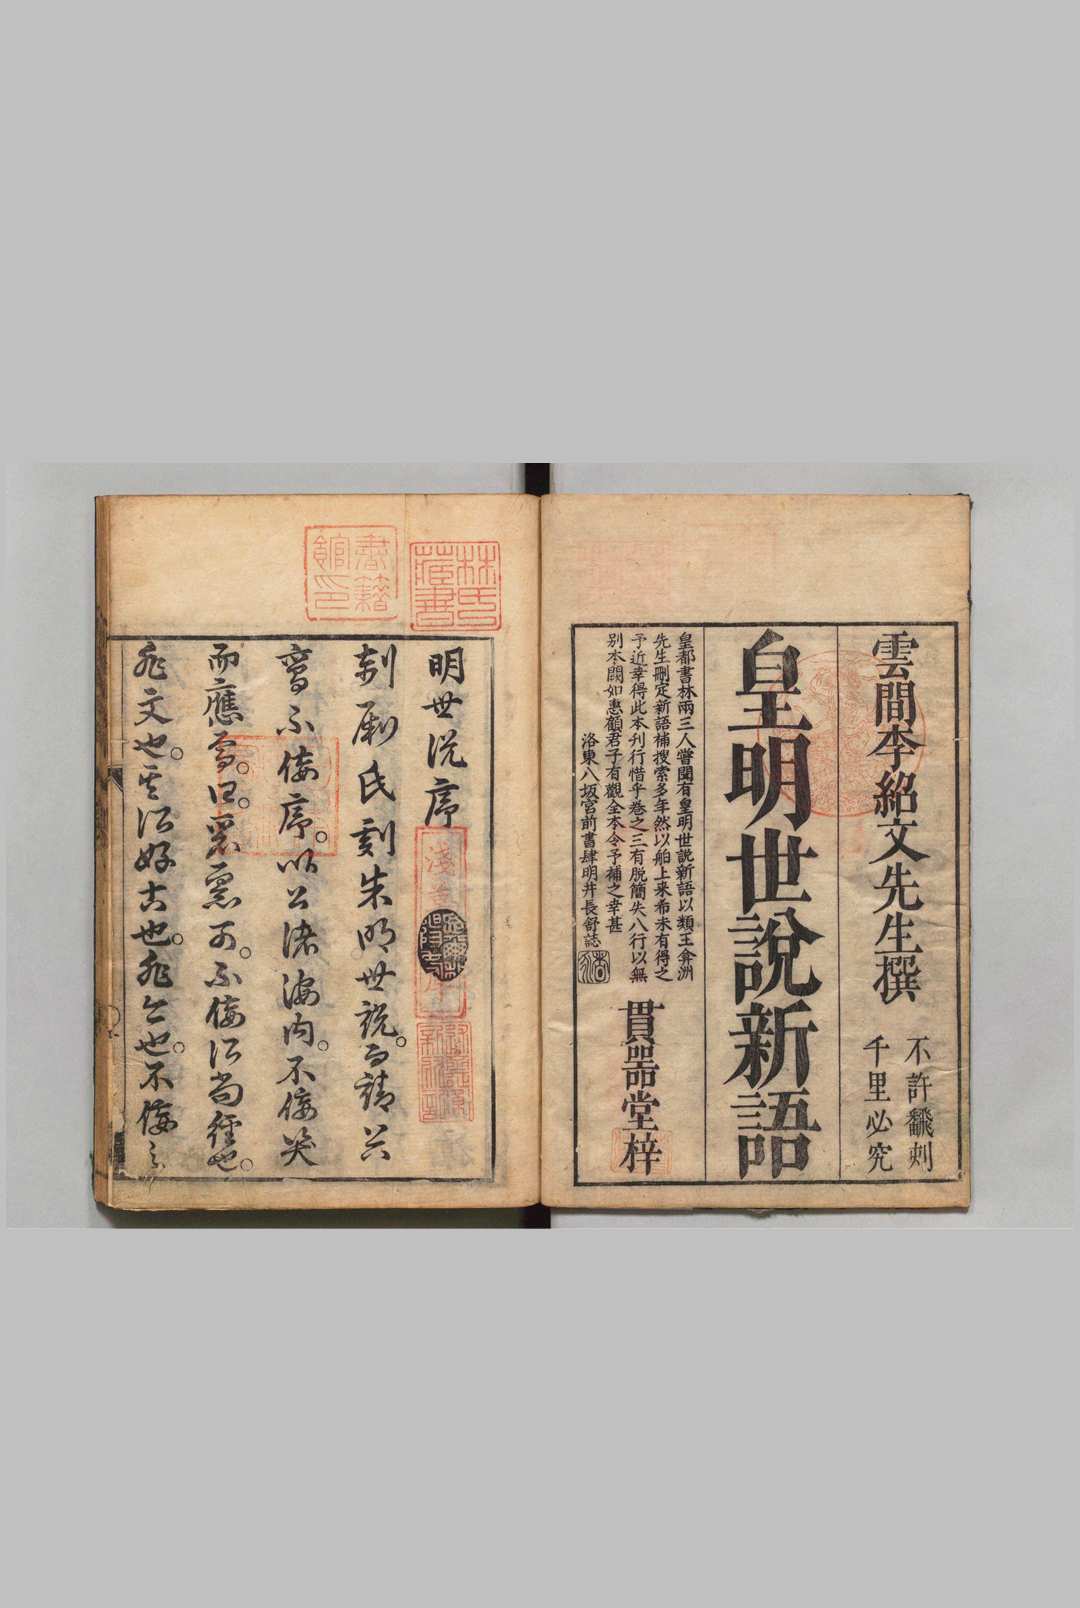 雲間李紹文先生撰
不許飜刺
千里必究
皇明世說新語
皇都書林兩三人嘗聞有皇明世說新語以類王弇洲
先生刪定新語補搜索多年然以舶上来希未有得之
予近幸得此本刊行惜乎卷之三有脱簡失八行以無
別本闕如惠顧君子有觀全本令予補之幸甚
洛東八坂宮前書肆明井長舒誌
貫器堂梓
林氏藏書
書籍館印
明世說序
剞劂氏刻朱明世說。而請以
為不佞序。以公諸海内。不佞笑
而應焉。曰。
可。不佞
所尚經也。
非文也。其所好古也。非今也。不佞之